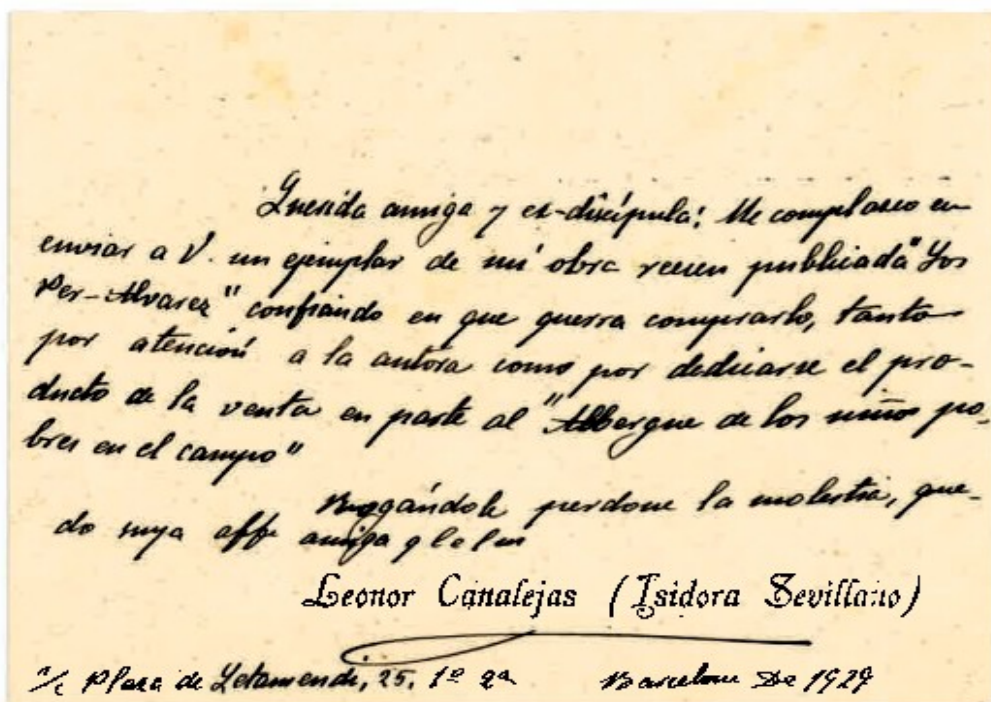 Querida amiga y ex-discípula: Me complazco en
enviar a V. un ejemplar de mi obra recien publicada "Los
Per-Alvarez" confiando en que querra comprarlo, tanto
por atención a la autora como por dedicarse el pro-
ducto de la venta en parte al "Albergue de los niños po-
bres en el campo"
Rogándole perdone la molestia, que-
do suya affª amiga q l e l m
Leonor Canalejas (Isidora Sevillano)
Plaza de Letamendi, 25, 1º 2ª Barcelona De 1929